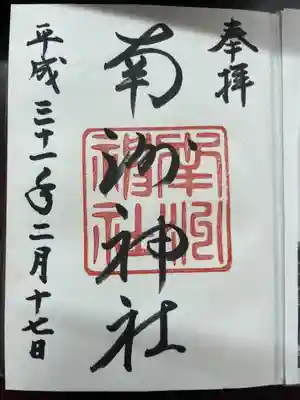 奉拝
南洲神社
平成三十一年二月十七日
南洲神社